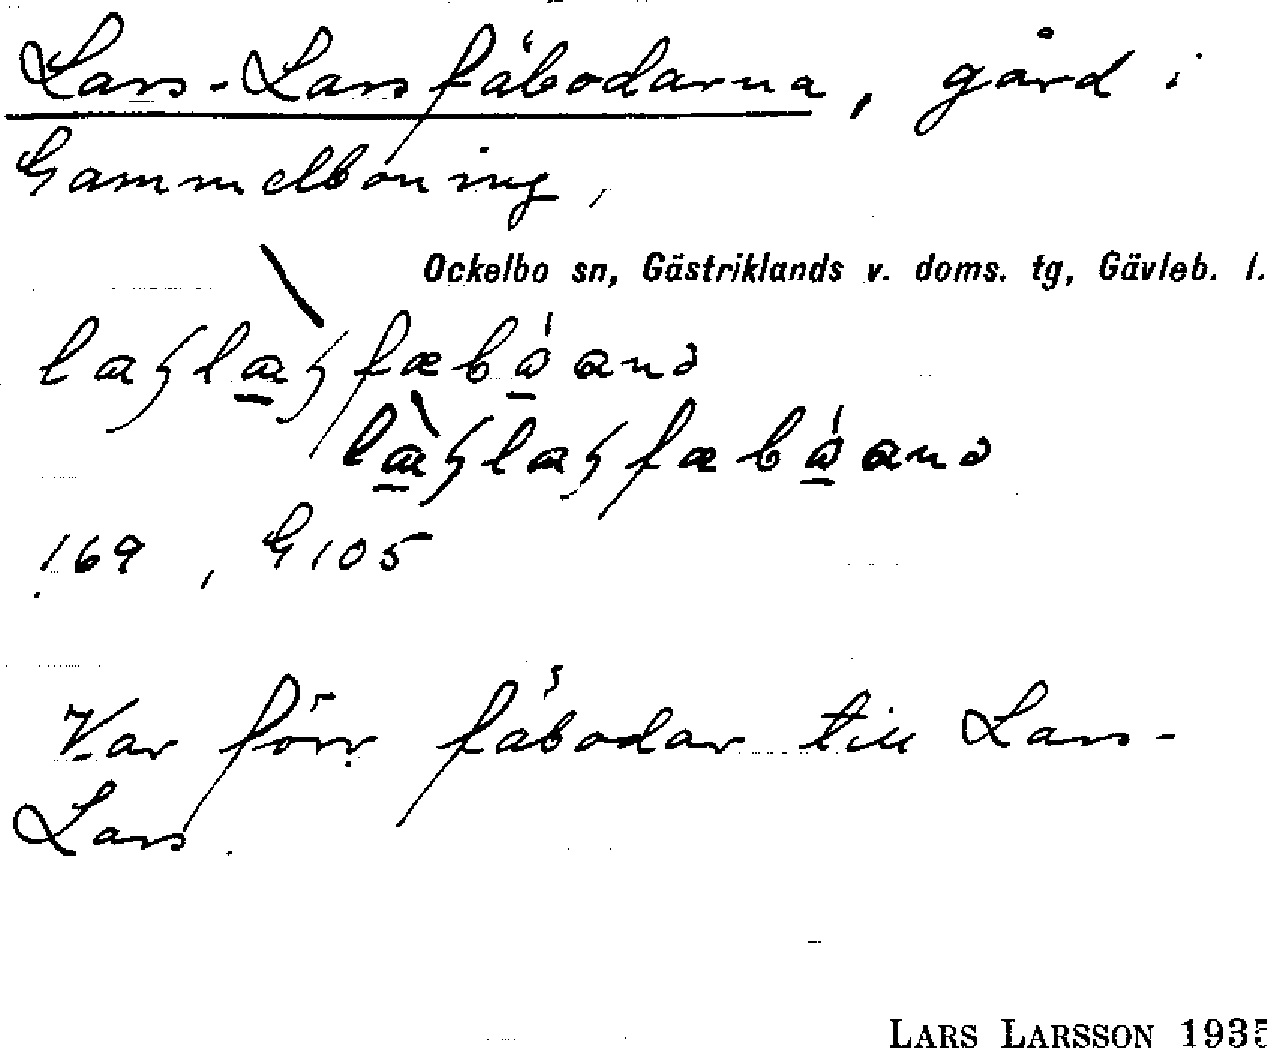 Lars-Larsfäbodarna, gård i
Gammelboning,
Ockelbo sn, Gästriklands v. doms. tg, Gävleb. l.
169, G 105
Var förr fäbodar till Lars-
Lars.
LARS LARSSON 1935